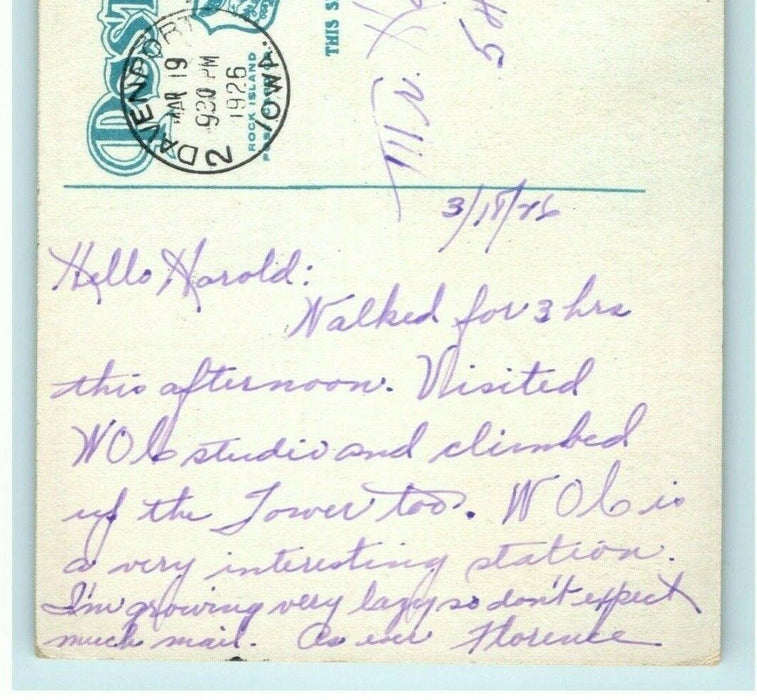 POST
DAVENPORT
MAR 19
9 30 PM
1926
2 IOWA.
ROCK ISLAND
THIS S
Ill.
3/18/26
Hello Harold:
Walked for 3 hrs
this afternoon. Visited
WOC studio and climbed
up the Tower too. WOC is
a very interesting station.
I'm growing very lazy so don't expect
much mail. As ever Florence